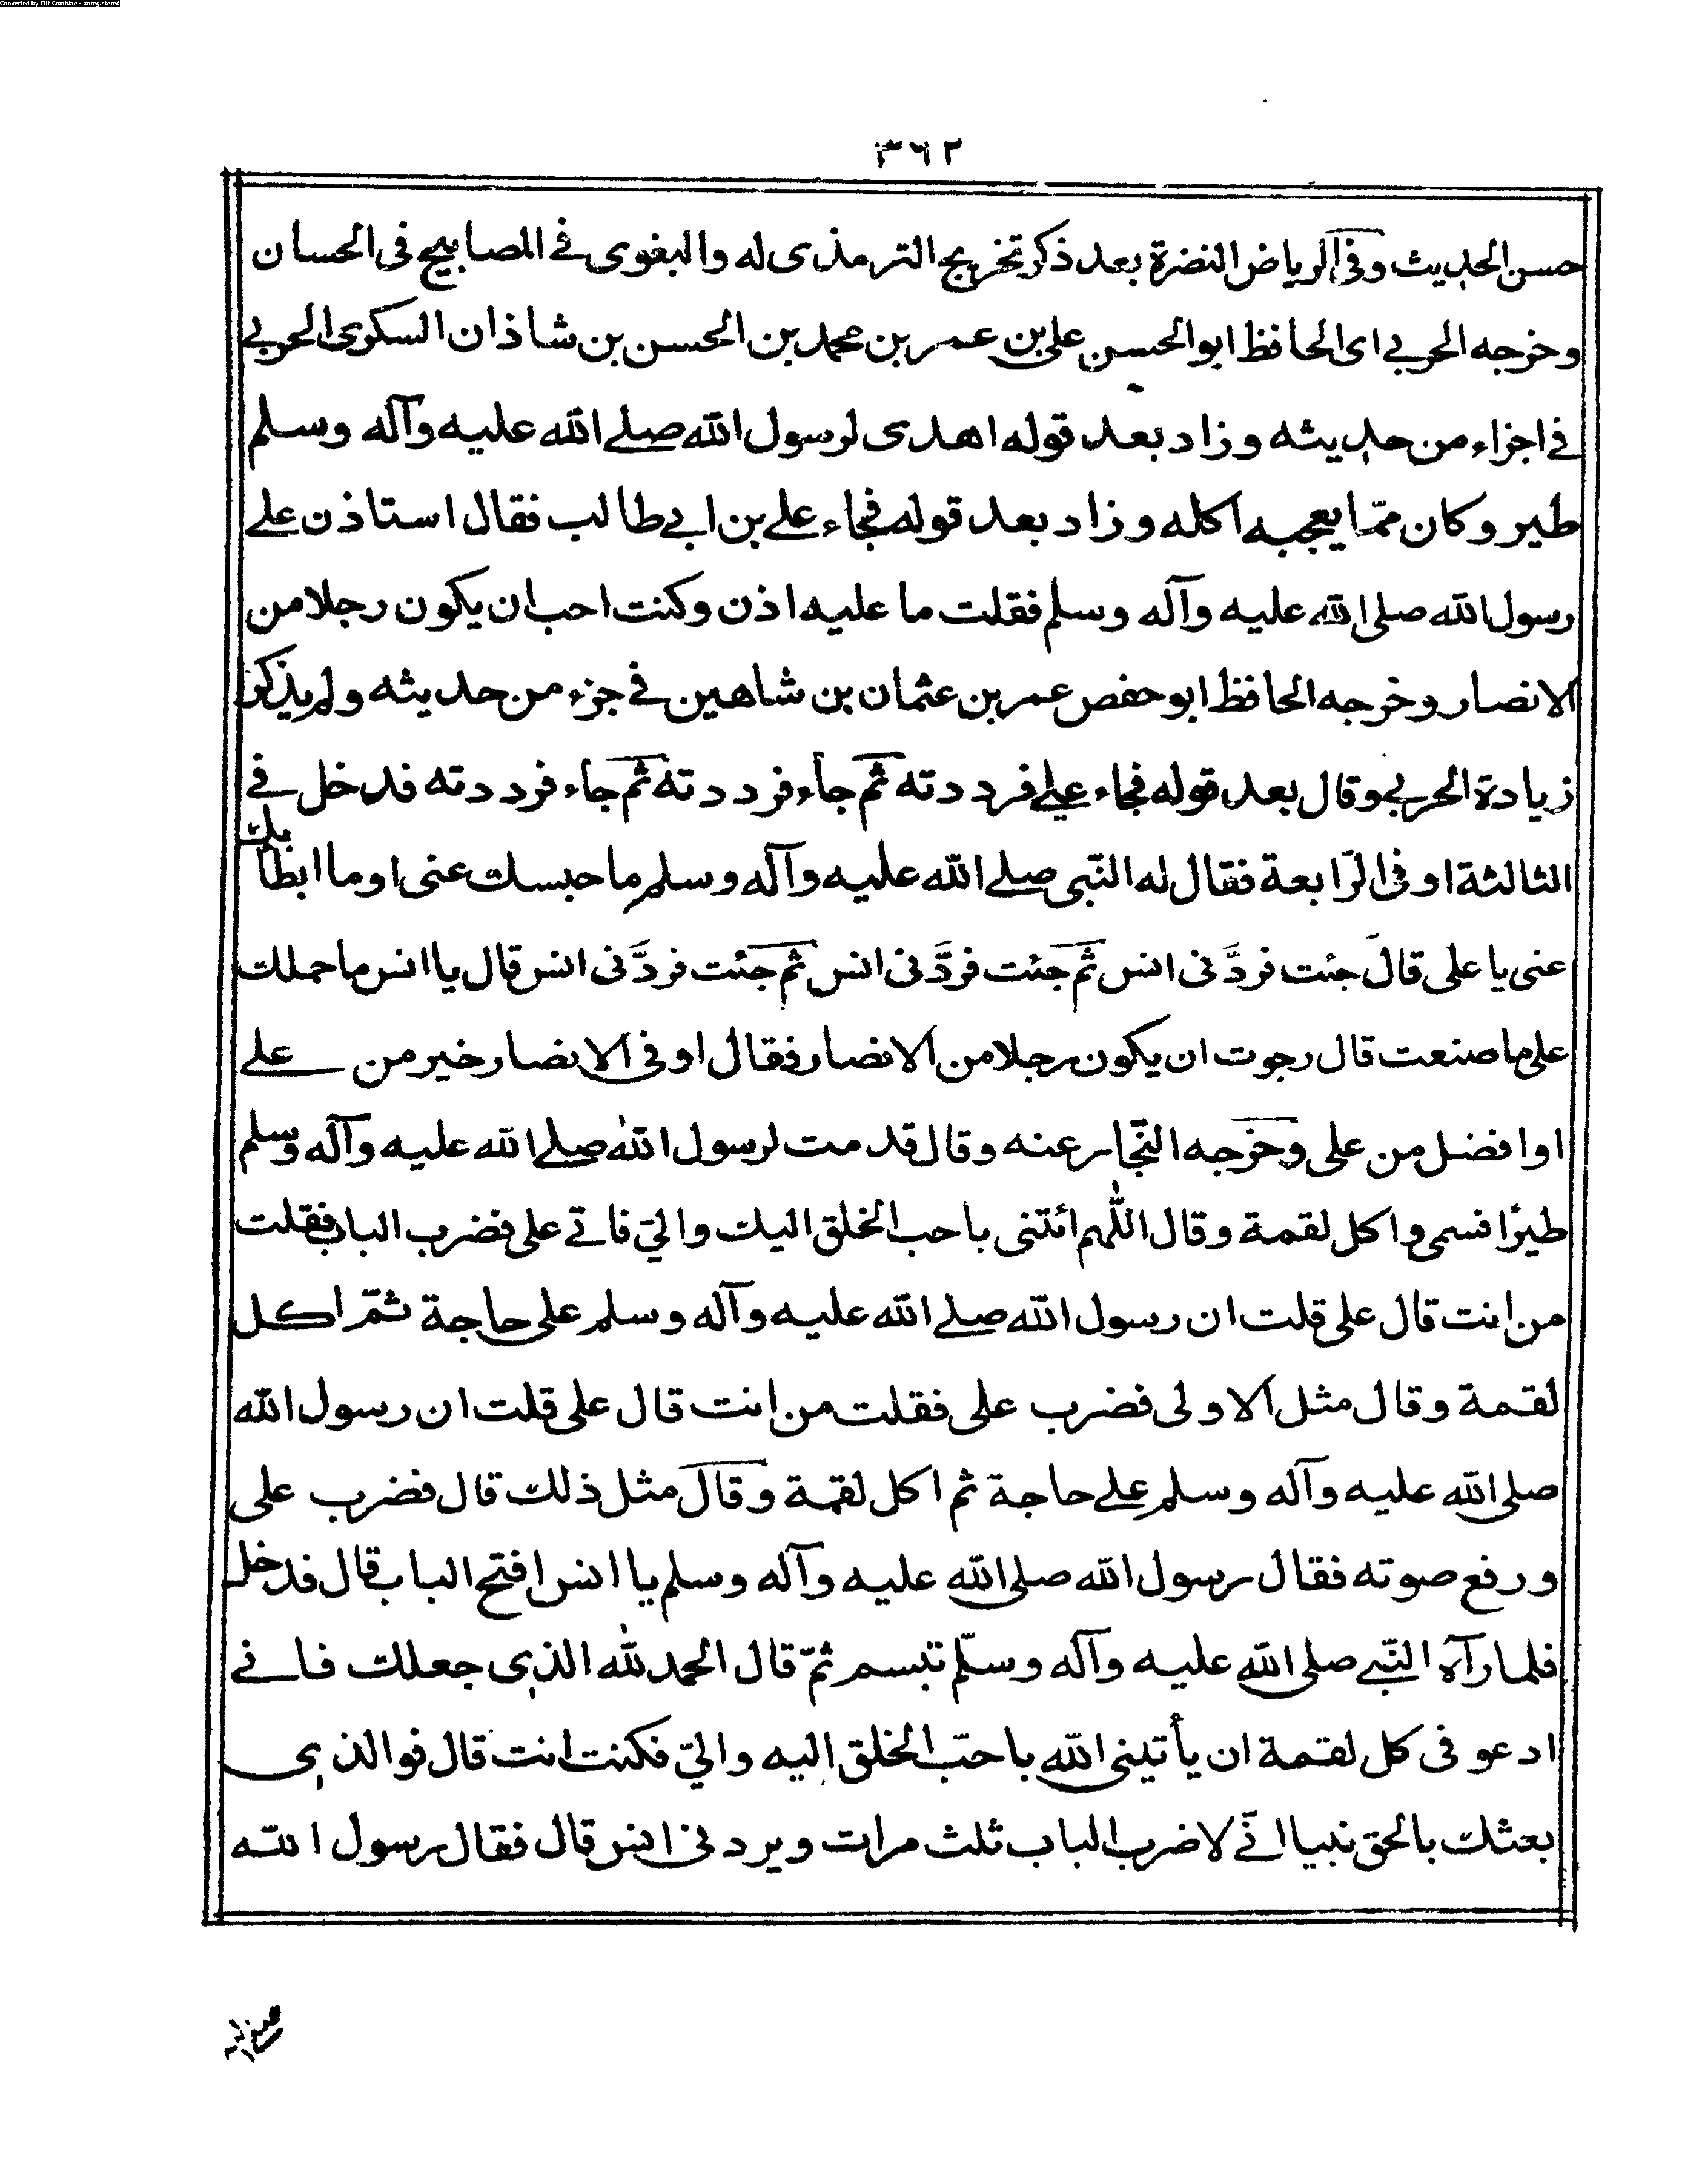 Converted by Tiff Combine - unregistered
٣٦٢
حسن الحديث وفى الرياض النضرة بعد ذكر تخريج الترمذى له والبغوى فے المصابيح فى الحسان
وخرجه الحربے اى الحافظ ابو الحسن على بن عمر بن محمد بن الحسن بن شاذان السكرى الحربے
فے اجزاء من حديثه وزاد بعد قوله اهدى لرسول الله صلے الله عليه وآله وسلم
طير وكان ممّا يعجبه اكله وزاد بعد قوله فجاء علے بن ابے طالب فقال استاذن علے
رسول الله صلى الله عليه وآله وسلم فقلت ما عليه اذن وكنت احب ان يكون رجلا من
الانصار وخرجه الحافظ ابو حفص عمر بن عثمان بن شاهين فے جزء من حديثه ولم يذكر
زيادة الحربے وقال بعد قوله فجاء علے فرددته ثم جاء فرددته ثم جاء فرددته فدخل فے
الثالثة او فى الرّابعة فقال له النّبى صلے الله عليه وآله وسلم ما حبسك عنى او ما ابطأ بك
عنى يا على قال جئت فردَّنى انس ثم جئت فردَّنى انس ثم جئت فردَّنى انس قال يا انس ما حملك
على ما صنعت قال رجوت ان يكون رجلا من الانصار فقال او فى الانصار خير من علے
او افضل من على وخرجه النجّار عنه وقال قدمت لرسول الله صلے الله عليه وآله وسلم
طيرًا فسمى واكل لقمة وقال اللّهم ائتنى باحب الخلق اليك والىّ فاتے على فضرب الباب فقلت
من انت قال على قلت ان رسول الله صلے الله عليه وآله وسلم على حاجة ثمّ اكل
لقمة وقال مثل الاولى فضرب على فقلت من انت قال على قلت ان رسول الله
صلى الله عليه وآله وسلم علے حاجة ثم اكل لقمة وقال مثل ذلك قال فضرب على
ورفع صوته فقال رسول الله صلى الله عليه وآله وسلم يا انس افتح الباب قال فدخل
فلما رآه النّبے صلى الله عليه وآله وسلّم تبسم ثمّ قال الحمد لله الذى جعلك فانے
ادعو فى كل لقمة ان يأتينى الله باحبّ الخلق اليه والىّ فكنت انت قال فوالذى
بعثك بالحق نبيا انّے لاضرب الباب ثلث مرات ويردنى انس قال فقال رسول الله